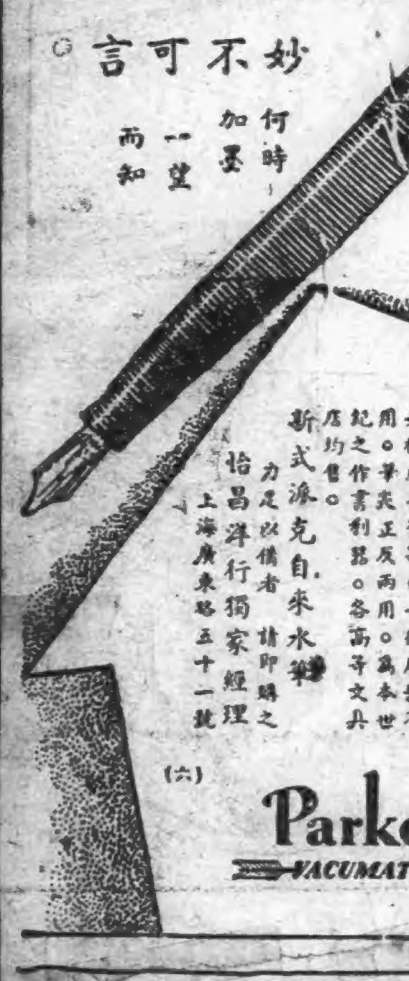 妙不可言
何時
加墨
一望
而知
用。筆尖正反兩用。為本世
紀之作書利器。各高等文具
店均售。
新式派克自來水筆
力足以備者 請即購之
怡昌洋行獨家經理
上海廣東路五十一號
(六)
Parke
VACUMAT